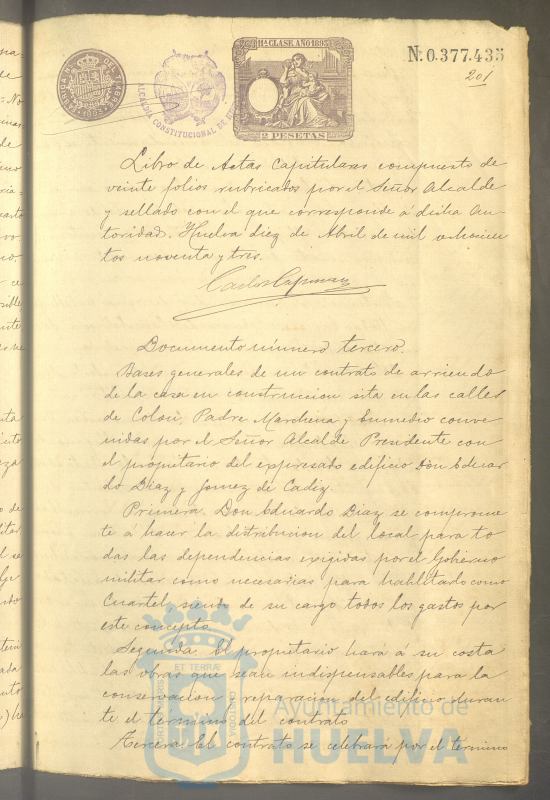 11ª CLASE. AÑO 1893
Nº 0.377.435
201
ALCALDIA CONSTITUCIONAL DE
2 PESETAS
Libro de Actas Capitulares compuesto de
veinte folios rubricados por el Señor Alcalde
y sellado con el que corresponde á dicha Au
toridad. Huelva diez de Abril de mil ochocien
tos noventa y tres.
Documento número tercero.
Bases generales de un contrato de arriendo
de la casa en construccion sita en las calles
de Colon, Padre Marchena y Enmedio conve
nidas por el Señor Alcalde Presidente con
el propietario del expresado edificio Don Eduar
do Diaz y Gomez de Cadiz.
Primera. Don Eduardo Diaz se comprome
te á hacer la distribucion del local para to
das las dependencias exigidas por el Gobierno
militar como necesarias para habilitarlo como
Cuartel, siendo de su cargo todos los gastos por
este concepto.
Segunda. El propietario hará á su costa
las obras que sean indispensables para la
conservacion y reparacion del edificio duran
te el termino del contrato
Tercera. El contrato se celebrará por el termino
ET TERRÆ
CUSTODIA
Ayuntamiento de
HUELVA